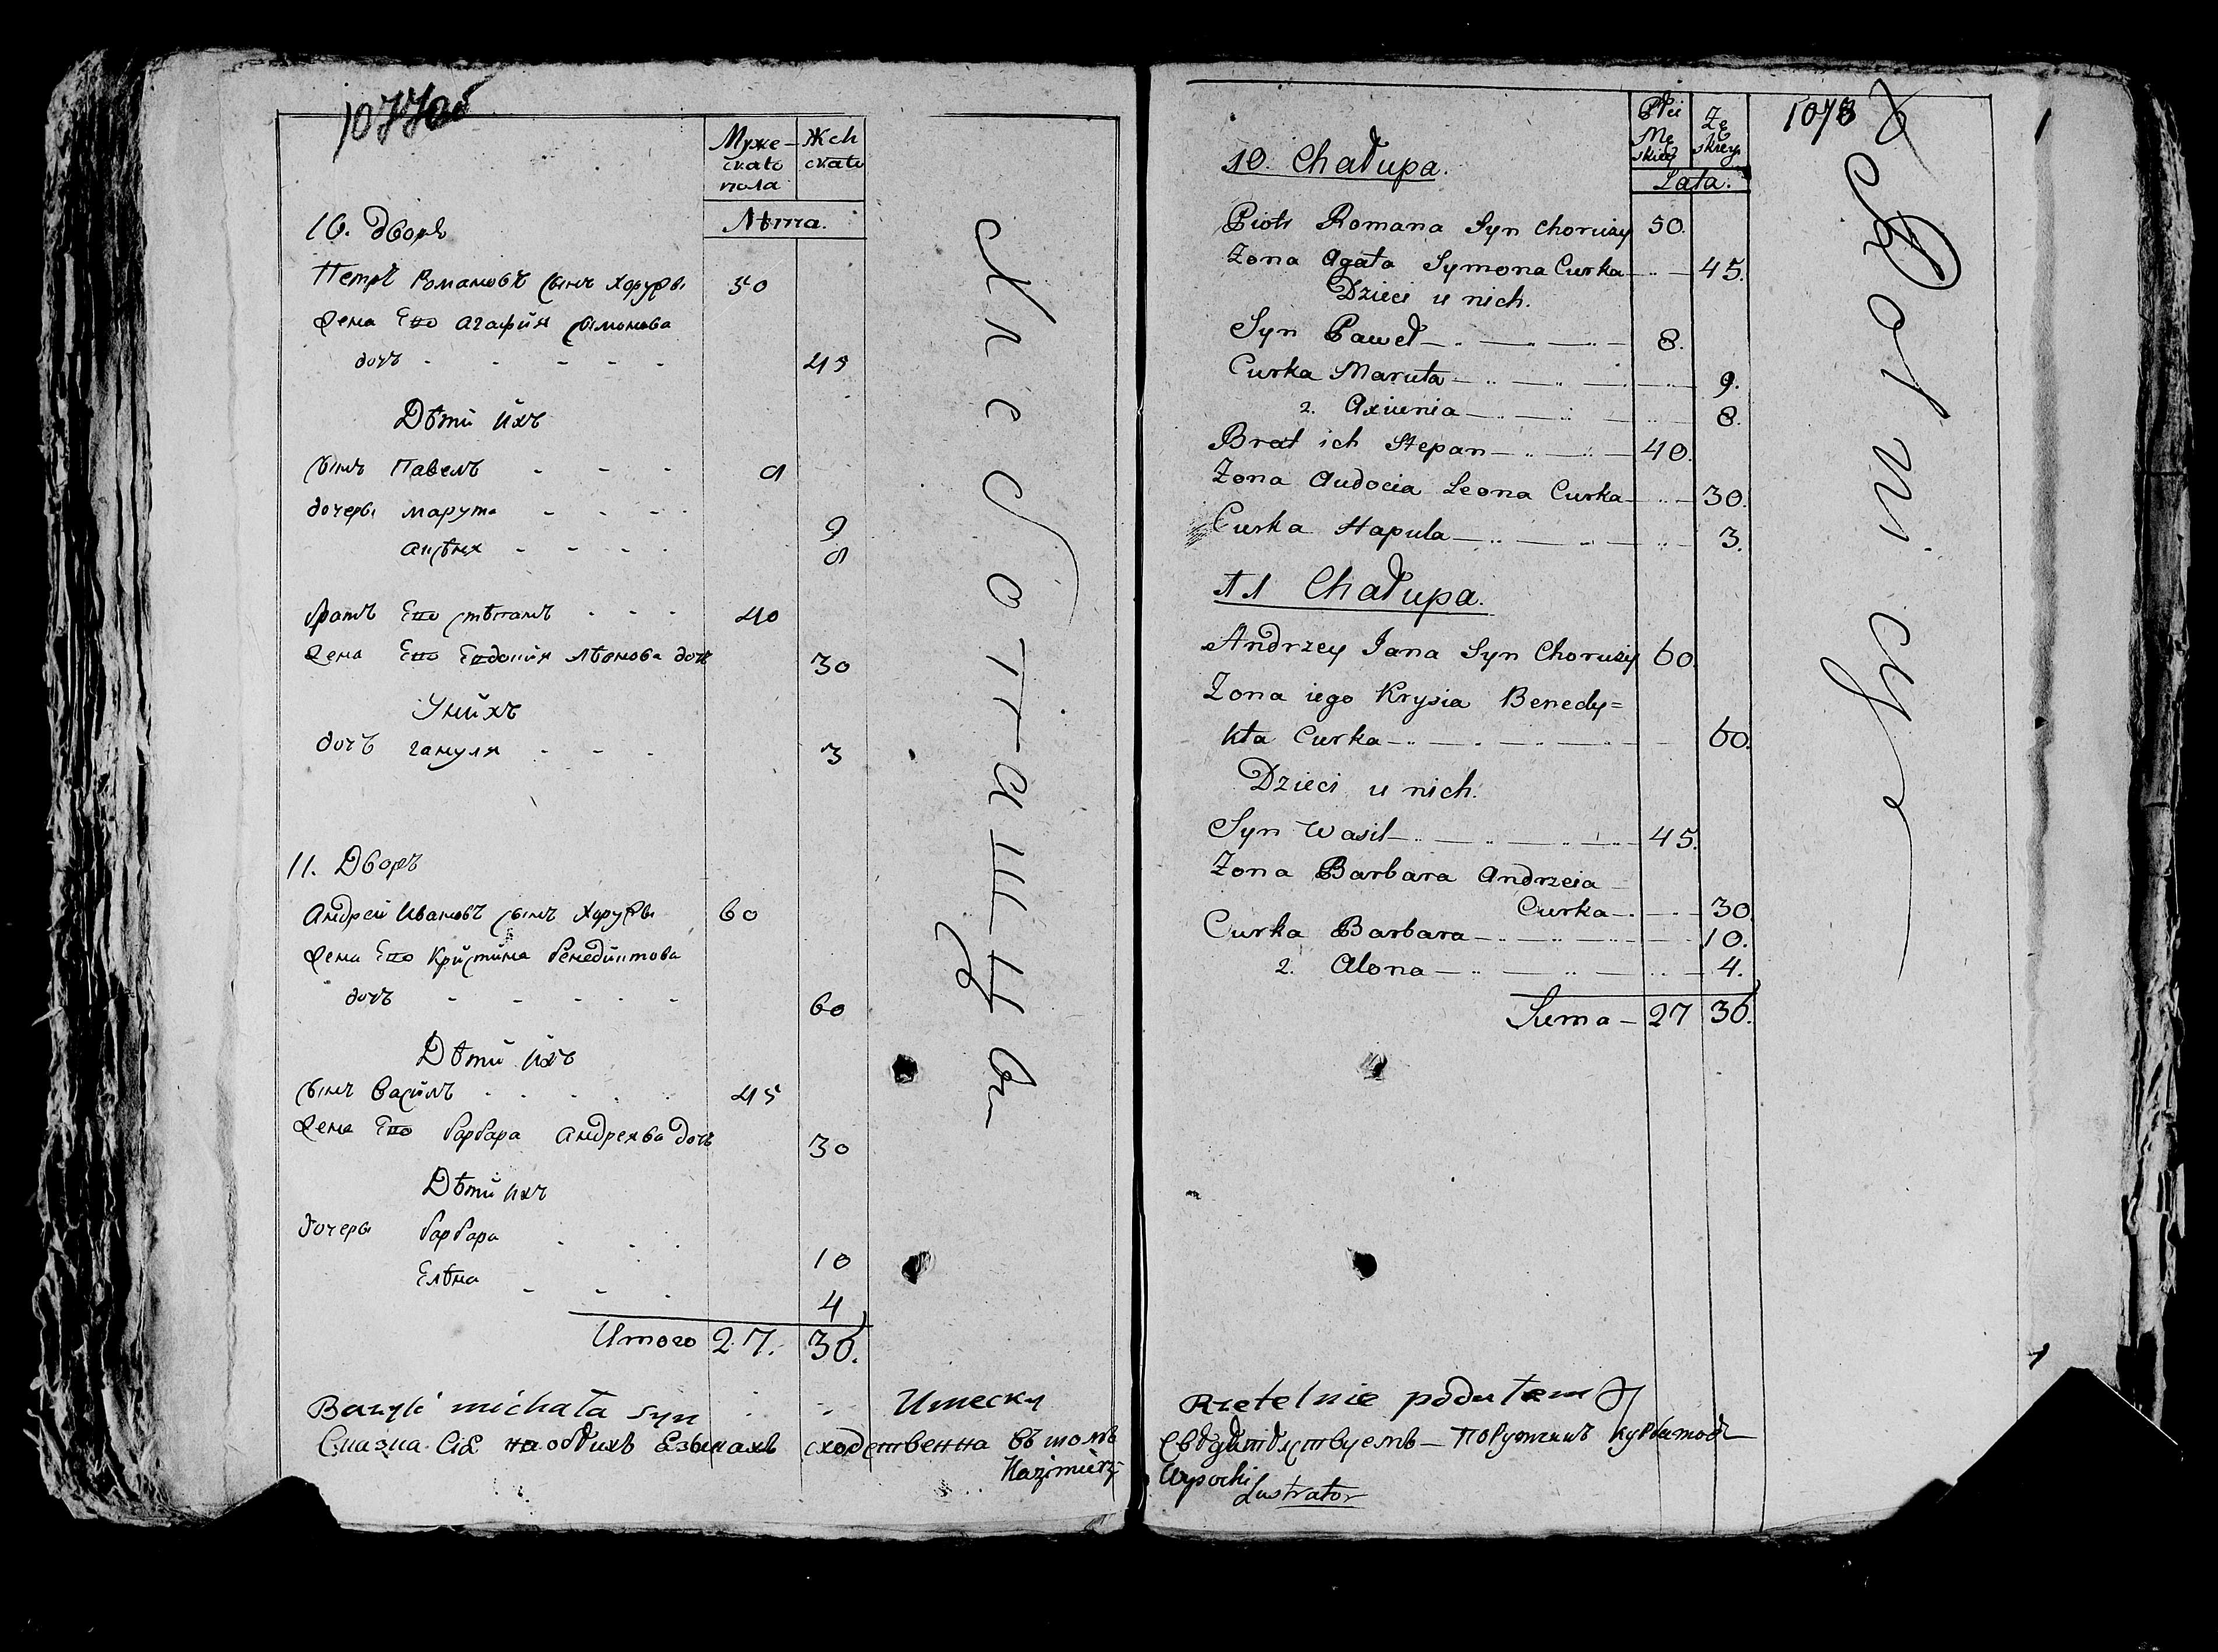 1077об
Муже-
скаго
пола
Жен
скаго
Лѣта.
10. дворъ
Петръ Романовъ сынъ Хоружы 50
жена Его Агафия сымонова
дочь - - - - - 45
Дѣти ихъ
сынъ Павелъ - - - 8
дочеры марута - - - 9
аксѣня - - - - 8
братъ Его стѣпанъ - - - 40
жена Его Евдокия лѣонова дочь 30
У нихъ
дочь гапуля - - - 3
11. Дворъ
Андрей Ивановъ сынъ Хоружы 60
жена Его Кристина бенедиктова
дочь - - - - - 60
Дѣти ихъ
сынъ василъ - - - - - 45
жена Его барбара андреява дочь 30
Дѣти ихъ
дочеры барбара - - - 10
Елѣна - - - 4
Итого 27. 36.
Bazyli michała syn Итеску
Сказка Сія на обѣихъ Езыкахъ сходственна въ томъ
Kazimierz
1078
Płci
Mę
skiey
Zę
skiey
Lata.
10. Chałupa.
Piotr Romana Syn Choruży 50.
Zona Agata Symona Curka 45.
Dzieci u nich.
Syn Paweł 8.
Curka Maruta 9.
2. Axiunia 8.
Brat ich Stepan 40.
Zona Audocia Leona Curka 30.
Curka Hapula 3.
11 Chałupa.
Andrzey Jana Syn Choruży 60.
Zona iego Krysia Benedy=
kta Curka 60.
Dzieci u nich.
Syn Wasil 45.
Zona Barbara Andrzeia
Curka 30.
Curka Barbara 10.
2. Alona 4.
Suma 27 36.
Rzetelnie podałem
Свѣдѣтѣлствуемъ Порутчикъ Курбатовъ
Wysocki
Lustrator